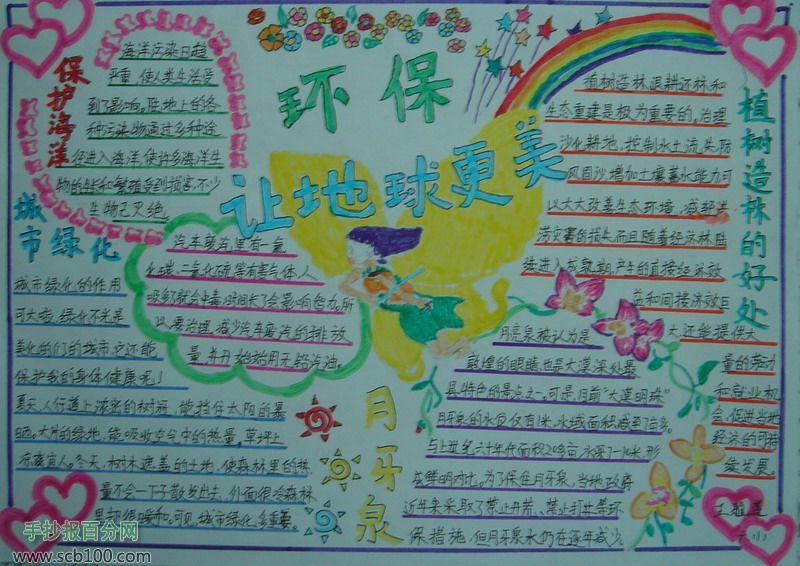 环保
让地球更美
保护海洋
海洋污染日趋
严重,使人类生活受
到了影响。陆地上的各
种污染物通过多种途
径进入海洋,使许多海洋生
物的生长和繁殖受到损害,不少
生物已灭绝。
城市绿化
城市绿化的作用
可大啦,绿化不光是
美化的们的城市,它还能
保护我的身体健康呢!
夏天,人行道上浓密的树荫,能挡住太阳的暴
晒。大片的绿地,能吸收空气中的热量,草坪上
凉爽宜人。冬天,树木遮盖的土地,使森林里的热
量不会一下子散发出去,外面很冷森林
里却很暖和。可见,城市绿化,多重要。
汽车废汽里有一氧
化碳、二氧化硫等有害气体,人
吸到就会中毒,时间长了会影响智力。所
以要治理,减少汽车废汽的排放
量并开始始用无铅汽油。
植树造林的好处
植树造林,退耕还林和
生态重建是极为重要的。治理
沙化耕地,控制水土流失,防
风固沙,增加土壤蓄水能力,可
以大大改善生态环境,减轻洪
涝灾害的损失,而且随着经济林陆
续进入成熟期,产生的直接经济效
益和间接济效巨
大,还能提供大
量的劳动
和就业机
会,促进当地
经济的可持
续发展。
月牙泉
月亮泉被认为是
敦煌的眼睛,也是大漠深处最
具特色的景点之一。可是,目前“大漠明珠”
月牙泉的水位仅有1米,水域面积减至7亩多。
与上世纪六十年代面积20多亩,水深7-10米,形
成鲜明对比。为了保住月牙泉,当地政府
近年来采取了禁止开荒、禁止打井等环
保措施,但月牙泉水仍在逐年减少。
六(1)
手抄报百分网
www.scb100.com